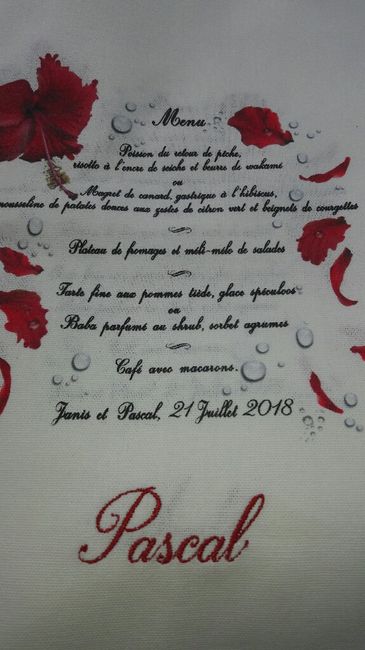 Menu
Poisson du retour de pêche,
risotto à l'encre de seiche et beurre de wakamé
ou
Magret de canard, gastrique à l'hibiscus,
mousseline de patates douces aux zestes de citron vert et beignets de courgettes
Plateau de fromages et méli-mélo de salades
Tarte fine aux pommes tiède, glace spéculoos
ou
Baba parfumé au shrub, sorbet agrumes
Café avec macarons.
Janis et Pascal, 21 Juillet 2018
Pascal